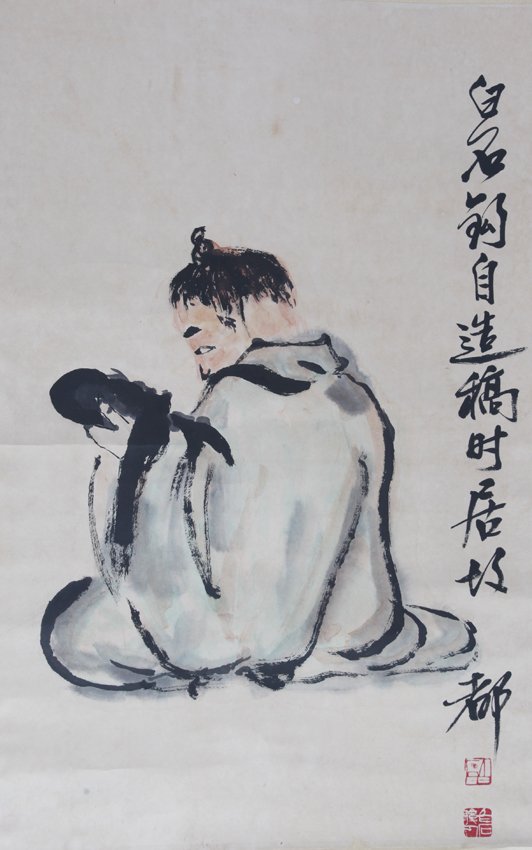 白石翁自造稿时居故都